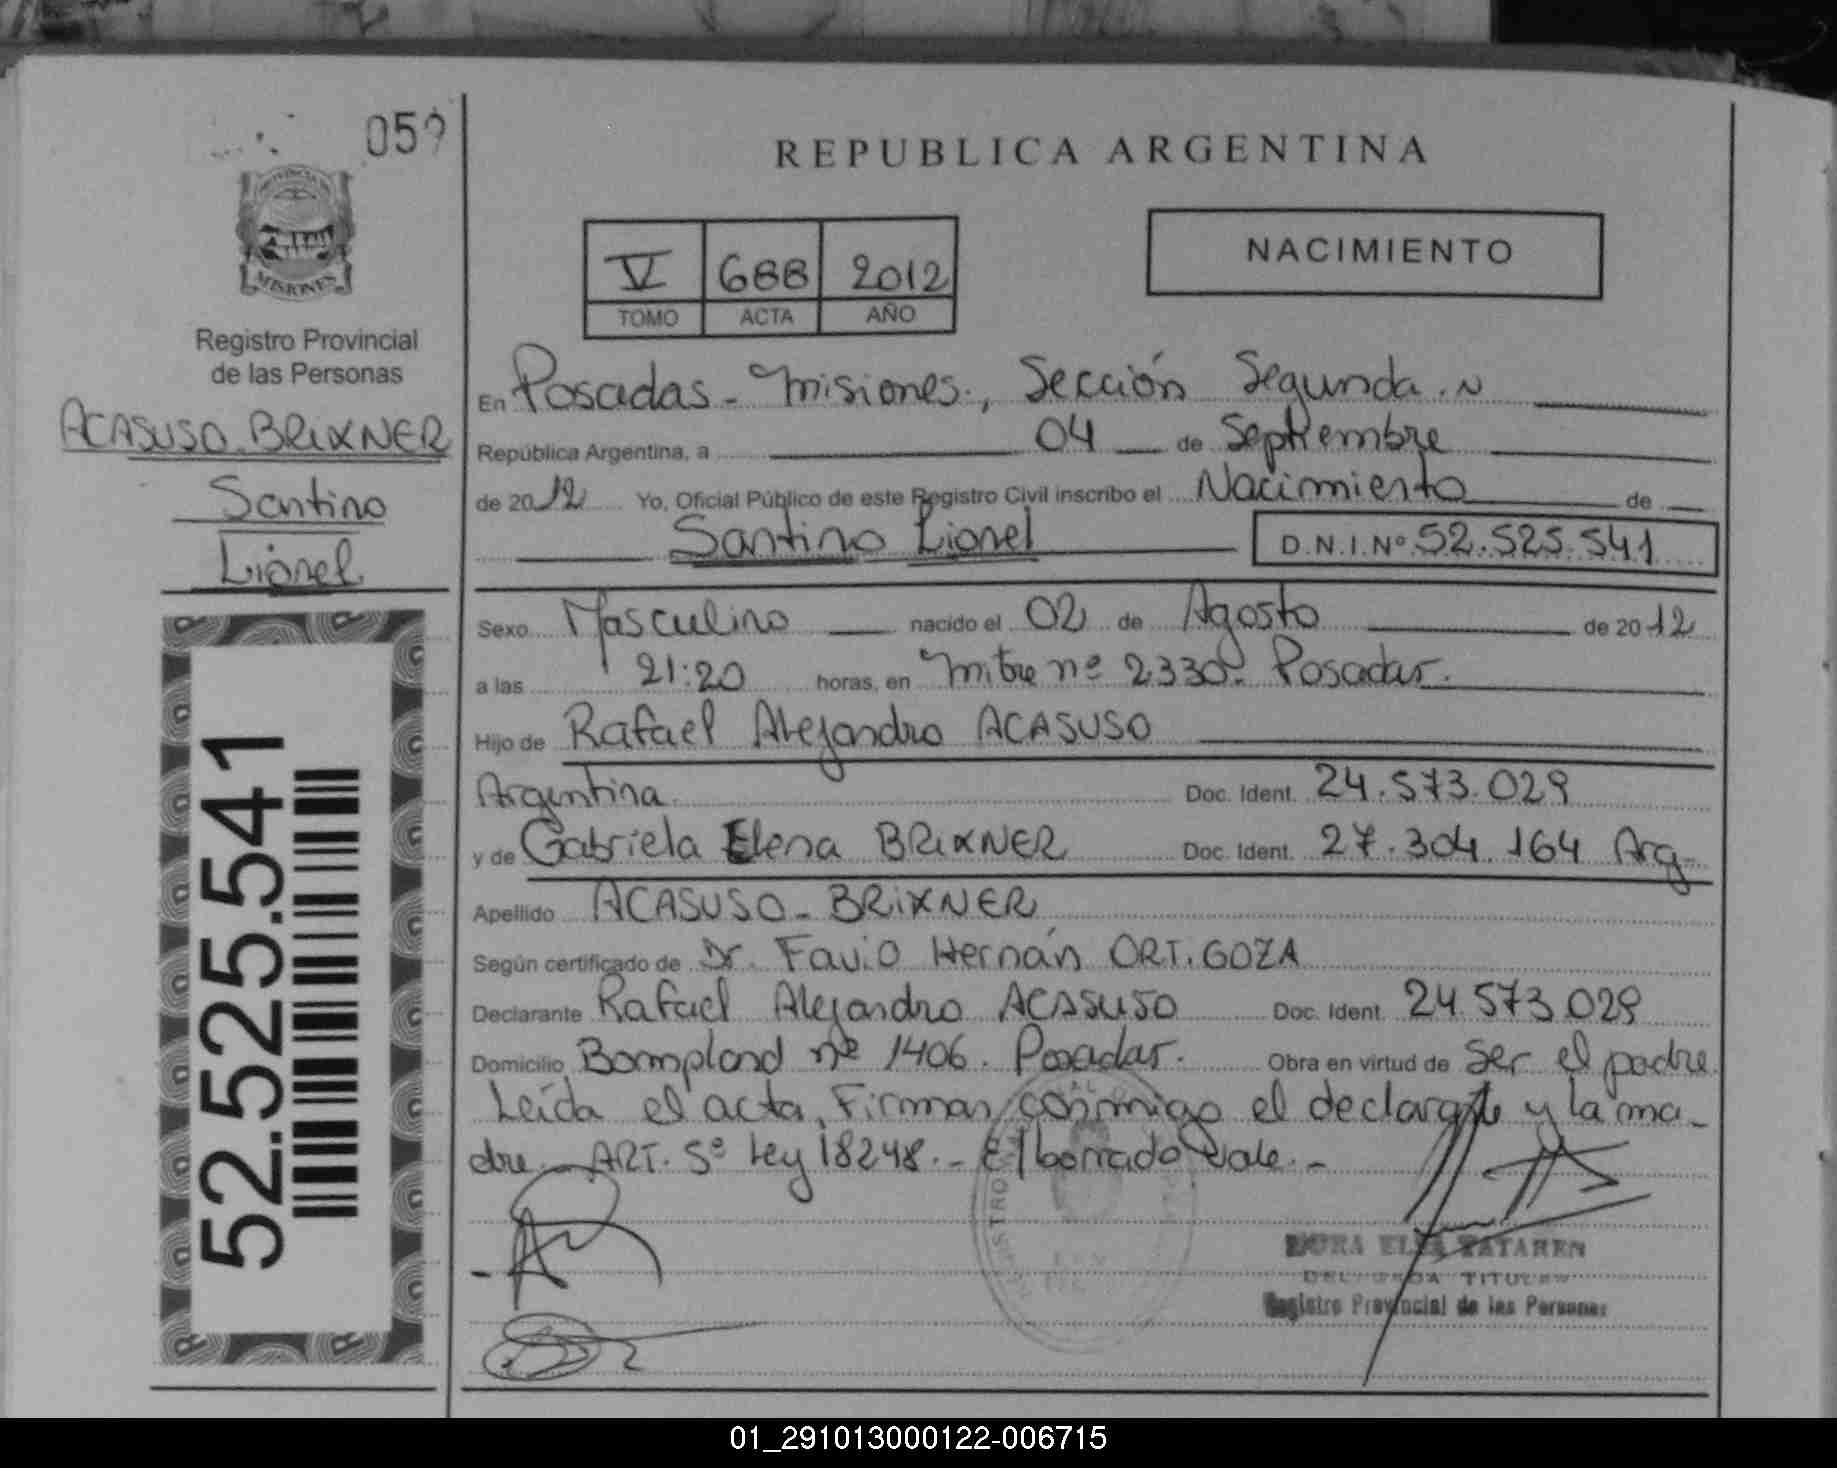 059
PROVINCIA DE
MISIONES
Registro Provincial
de las Personas
ACASUSO-BRIXNER
Santino
Lionel
52.525.541
REPUBLICA ARGENTINA
V 688 2012
TOMO ACTA AÑO
NACIMIENTO
En Posadas - Misiones., Sección Segunda.
República Argentina, a 04 de Septiembre
de 2012 Yo, Oficial Público de este Registro Civil inscribo el Nacimiento de
Santino Lionel D.N.I.Nº 52.525.541
Sexo Masculino nacido el 02 de Agosto de 2012
a las 21:20 horas, en Mitre nº 2330- Posadas.
Hijo de Rafael Alejandro ACASUSO
Argentina Doc. Ident. 24.573.029
y de Gabriela Elena BRIXNER Doc. Ident. 27.304.164 Arg-
Apellido ACASUSO - BRIXNER
Según certificado de Dr. Favio Hernán ORTIGOZA
Declarante Rafael Alejandro ACASUSO Doc. Ident. 24.573.029
Domicilio Bompland nº 1406. Posadas. Obra en virtud de ser el padre
Leída el acta, Firman conmigo el declarante y la ma-
dre.- ART. 5º Ley 18248.- El borrado Vale.-
TATAREN
TITULAR
Registro Provincial de las Personas
01_291013000122-006715